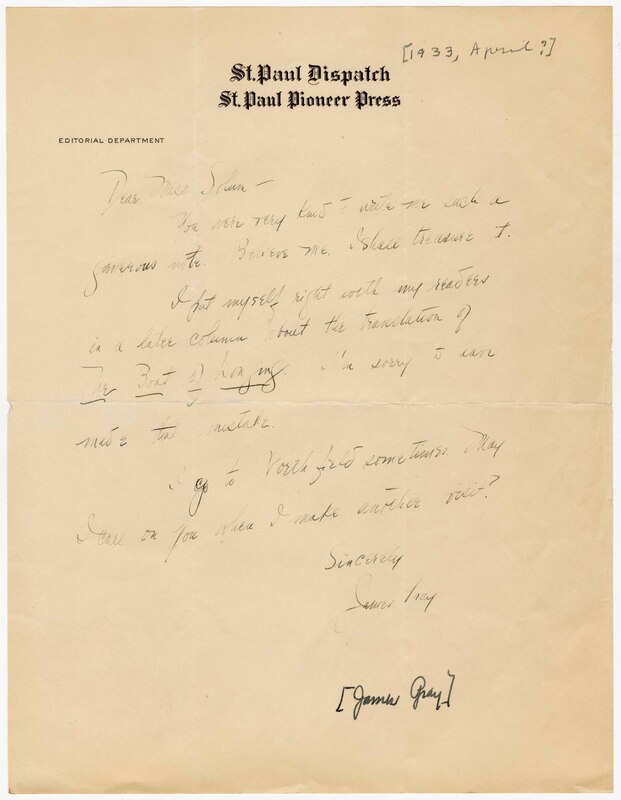 [1933, April?]
St. Paul Dispatch
St. Paul Pioneer Press
EDITORIAL DEPARTMENT
Dear Miss Solum –
You were very kind to write me such a
generous note. Believe me, I shall treasure it.
I put myself right with my readers
in a later column about the translation of
The Boat of Longing. I'm sorry to have
made that mistake.
I go to Northfield sometimes. May
I call on you when I make another visit?
Sincerely
James Gray
[James Gray]